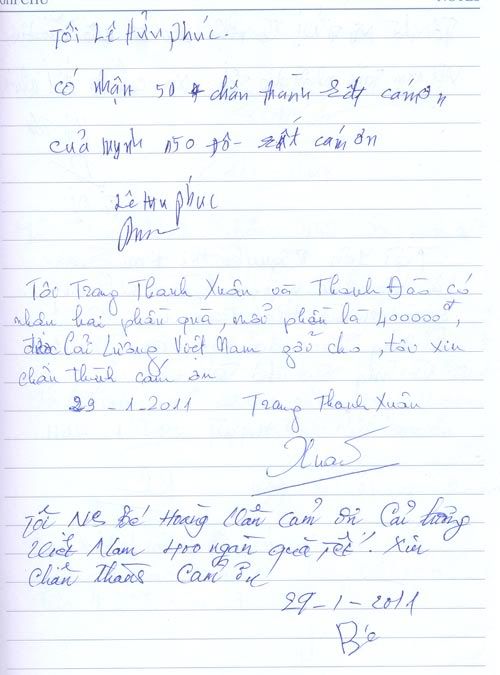 Tôi Lê Hữu Phúc.
có nhận 50 chân thành rất cám ơn
của mynh 150 đô - rất cám ơn
Lê Hữu Phúc
Tôi Trang Thanh Xuân và Thanh Đào có
nhận hai phần quà, mỗi phần là 400000đ,
được Cải Lương Việt Nam gởi cho, tôi xin
chân thành cám ơn
29-1-2011 Trang Thanh Xuân
Xuân
Tôi NS Bé Hoàng Vân cảm ơn Cải Lương
Việt Nam 400 ngàn quà Tết. Xin
Chân Thành Cảm ơn
29-1-2011
Bé